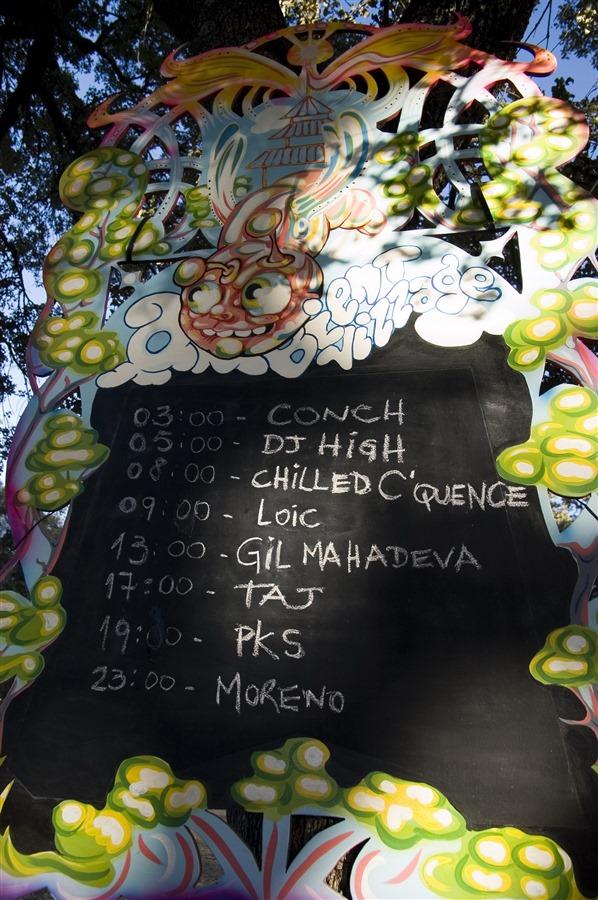 ambient village
03:00 - CONCH
05:00 - DJ HIGH
08:00 - CHILLED C'QUENCE
09:00 - LOIC
13:00 - GIL MAHADEVA
17:00 - TAJ
19:00 - PKS
23:00 - MORENO